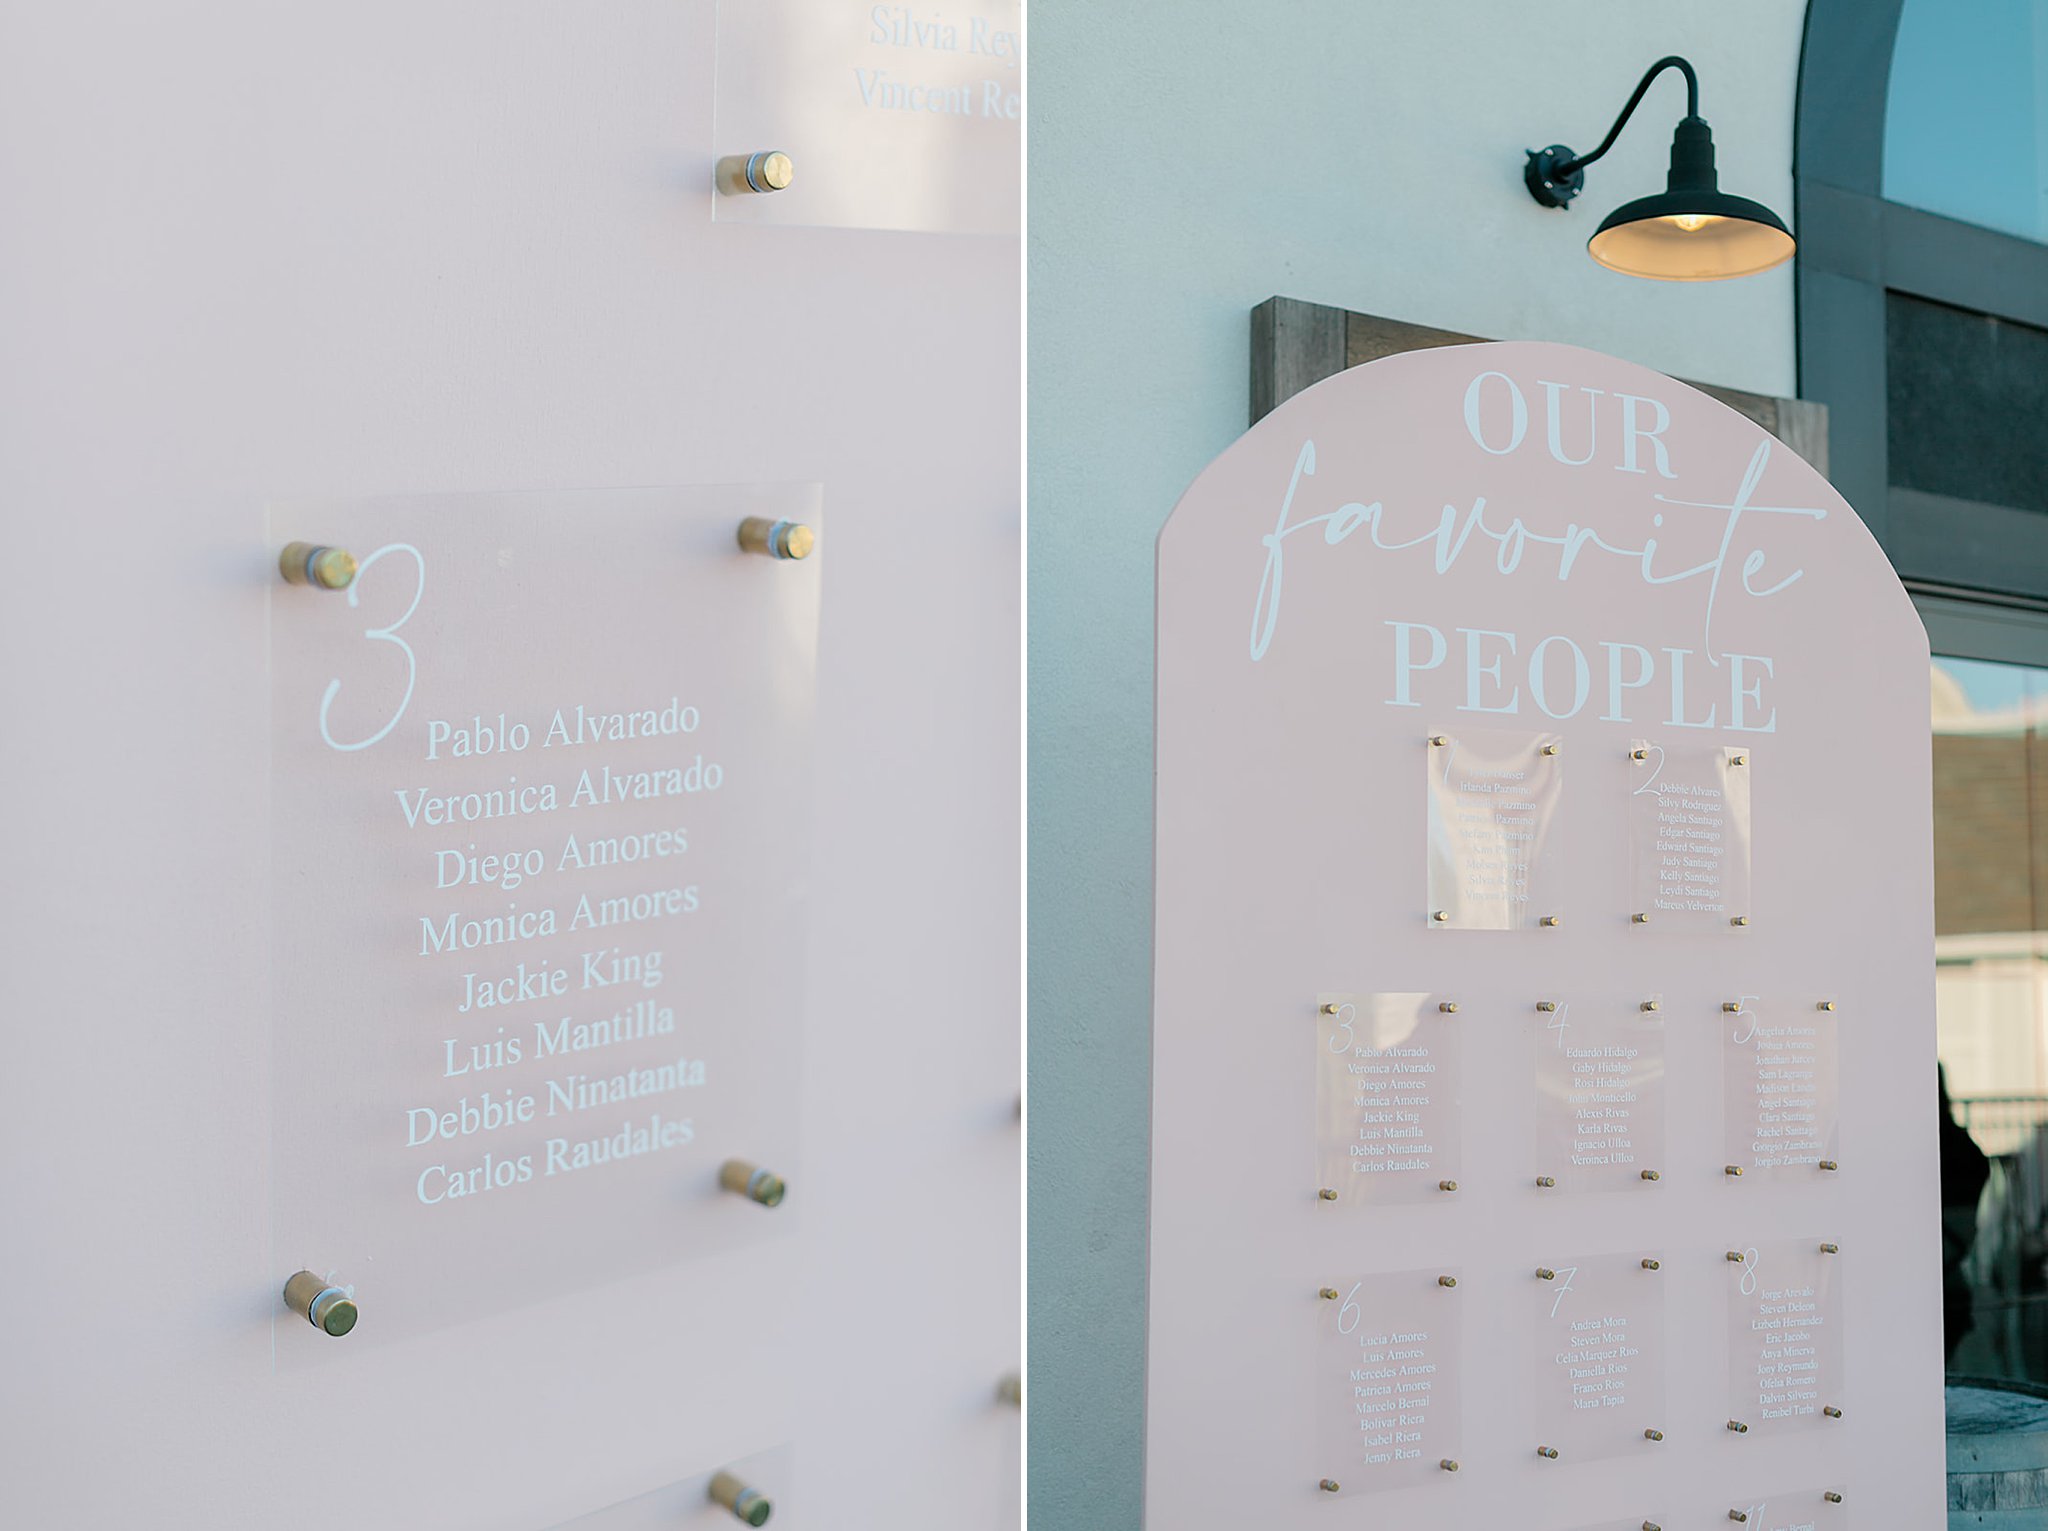 Silvia Rey
Vincent Re
3
Pablo Alvarado
Veronica Alvarado
Diego Amores
Monica Amores
Jackie King
Luis Mantilla
Debbie Ninatanta
Carlos Raudales
OUR
favorite
PEOPLE
1
Irlanda Pazmino
Pazmino
Patricio Pazmino
Stefany Pazmino
Kim
Reyes
Silvia Reyes
Vincent Reyes
2
Debbie Alvares
Silvy Rodriguez
Angela Santiago
Edgar Santiago
Edward Santiago
Judy Santiago
Kelly Santiago
Leydi Santiago
Marcus Yelverton
3
Pablo Alvarado
Veronica Alvarado
Diego Amores
Monica Amores
Jackie King
Luis Mantilla
Debbie Ninatanta
Carlos Raudales
4
Eduardo Hidalgo
Gaby Hidalgo
Rosi Hidalgo
John Monticello
Alexis Rivas
Karla Rivas
Ignacio Ulloa
Veroinca Ulloa
5
Angelia Amores
Joshua Amores
Jonathan Jurces
Sam Lagrange
Madison Landa
Angel Santiago
Clara Santiago
Rachel Santiago
Giorgio Zambrano
Jorgito Zambrano
6
Lucia Amores
Luis Amores
Mercedes Amores
Patricia Amores
Marcelo Bernal
Bolivar Riera
Isabel Riera
Jenny Riera
7
Andrea Mora
Steven Mora
Celia Marquez Rios
Daniella Rios
Franco Rios
Maria Tapia
8
Jorge Arevalo
Steven Deleon
Lizbeth Hernandez
Eric Jacobo
Anya Minerva
Jony Reymundo
Ofelia Romero
Dalvin Silverio
Renibel Turbi
11
Bernal